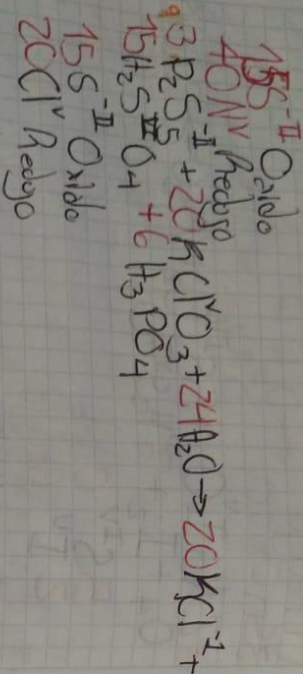 15S⁻ᴵᴵ Oxido
40Nⱽ Redujo
3 P₂S₅⁻ᴵᴵ + 20KClⱽO₃ + 24H₂O → 20KCl⁻¹ +
15H₂SⱽᴵO₄ + 6 H₃PO₄
15S⁻ᴵᴵ Oxido
20Clⱽ Redujo